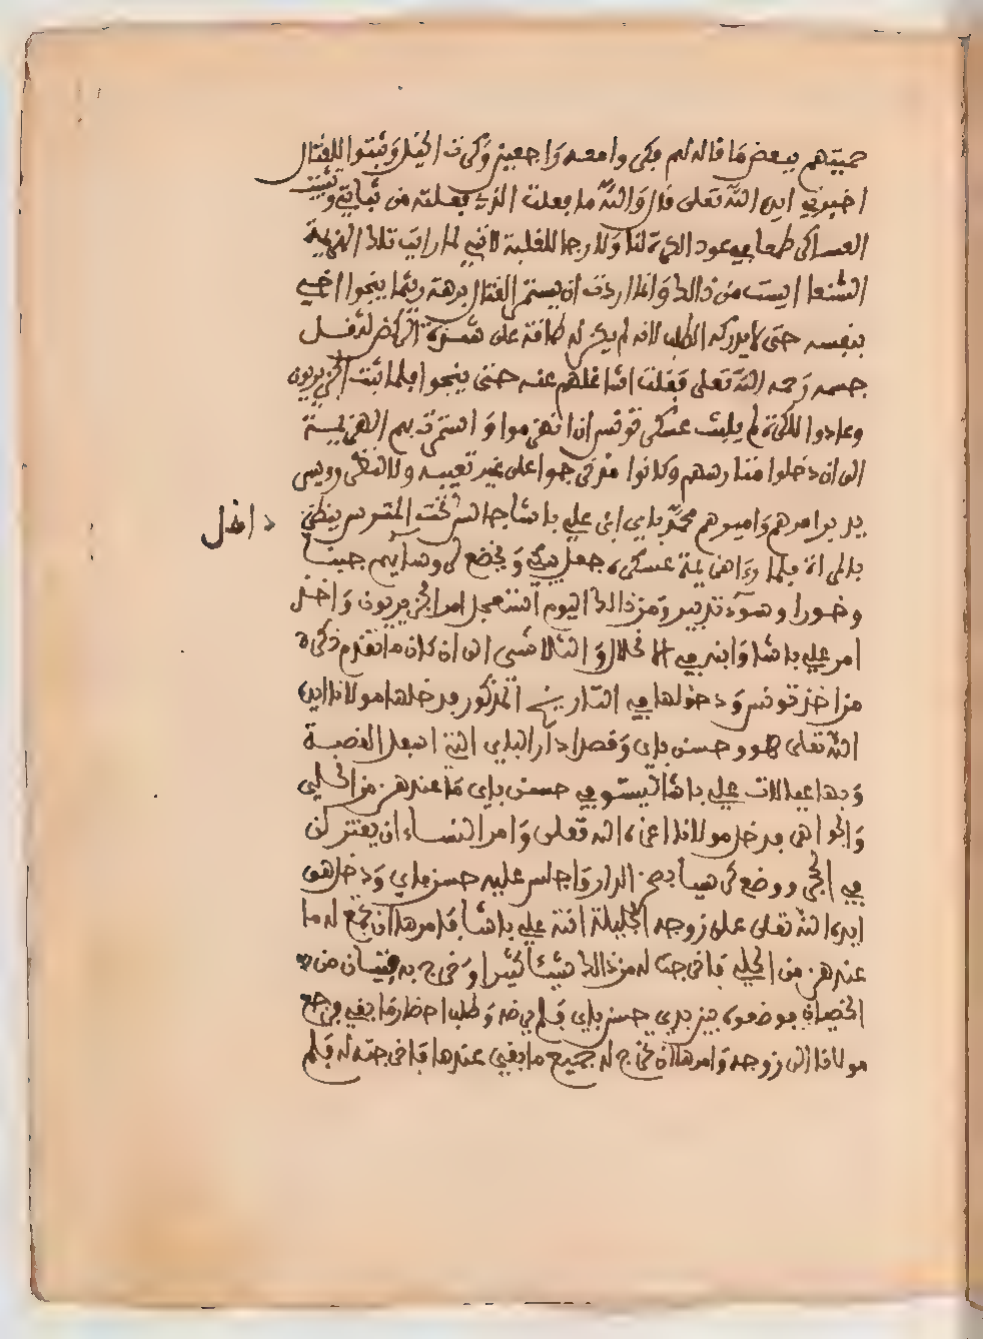 حميتهم ببعض ما قاله لهم فبكى وا معه وا جعين وكرت الخيل وثبتوا للقتال
اخبرني ايده الله تعلى قال والله ما فعلت الذي فعلته من ثباتي وتثبيت
العساكر طمعا في عود الدولة لنا ولا رجا للغلبة لانني لما رايت تلك الهزيمة
الشنعا ايست من ذالك وانما اردت ان يستمر القتال برهة ريثما ينجوا اخي
بنفسه حتى لا يدركه الطلب لانه لم يكن له طاقة على الركض لثقل
جسمه رحمه الله تعلى فقلت اشاغلهم عنه حتى ينجوا فلما ثبت الجزيريون
وعادوا للكرة لم يلبث عسكر تونس ان انهزموا واستمرت بهم الهزيمة
الى ان دخلوا متارسهم وكانوا قد خرجوا على غير تعبية ولا لنظر رويس
يدبر امرهم واميرهم محمد باي ابن علي باشا جالس تحت المتوس ينظر
داخل
بالمراة فلما رءا هزيمة عسكره جعل يبكي ويخضع كروساءهم جبنا
وخورا وسوء تدبير ومن ذالك اليوم استعجل امر الجزيريون واخذ
امر علي باشا وابنه في الانحلال والتلاشي الى ان كان ما تقدم ذكره
من اخذ تونس ودخولها في التاريخ المذكور فدخلها مولانا ايده
الله تعلى هو وحسن باي وقصدا دار الباي التي اسفل القصبة
وبها عيالات علي باشا ليستوفي حسن باي ما عندهن من الحلي
والجواهر فدخل مولانا اعزه الله تعلى وامر النساء ان يعتزلن
في الحجر ووضع كرسيا بصحن الدار واجلس عليه حسن باي ودخل هو
ايده الله تعلى على زوجه الجليلة ابنة علي باشا فامرها ان تجمع له ما
عندهن من الحلي فاخرجت له من ذالك شيئا كثيرا وخرج به فتيان من
الخصيان فوضعوه بين يدي حسن باي فلم يرضه وطلب احضار ما بقي فرجع
مولانا الى زوجه وامرها ان تخرج له جميع ما بقي عندها فاخرجته له فلم